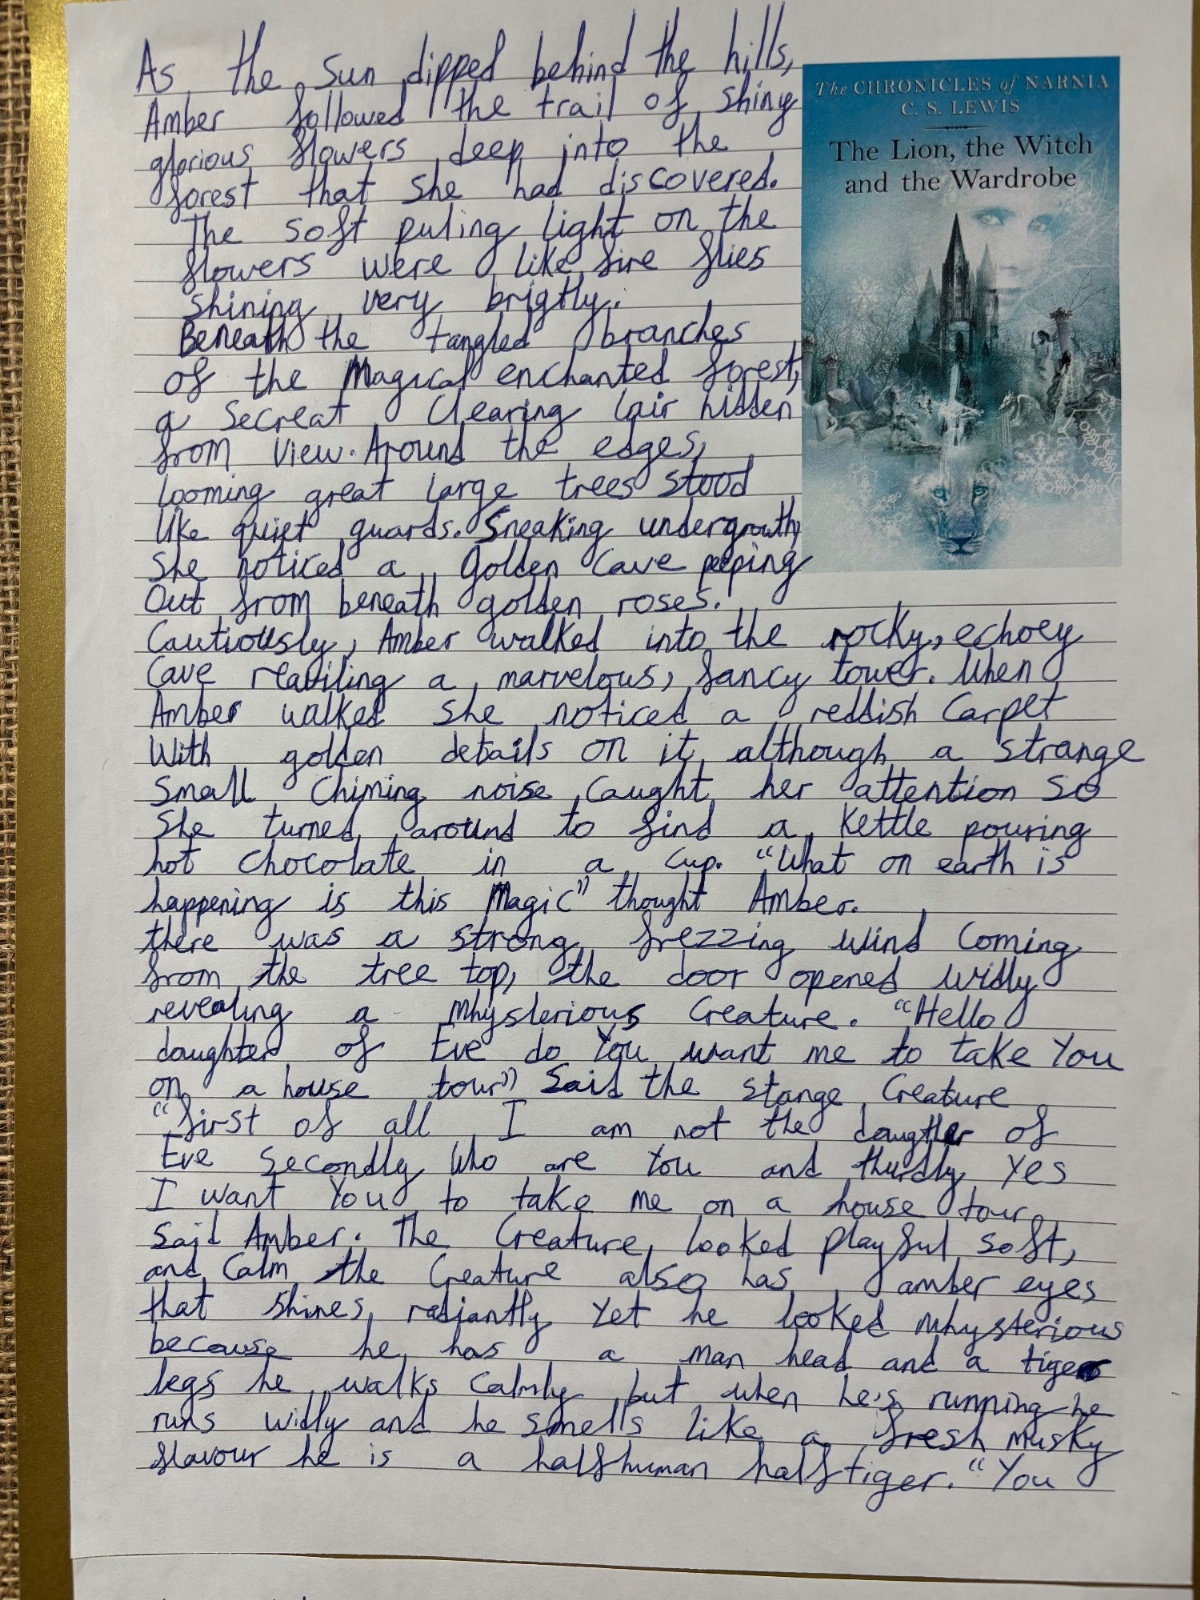 The CHRONICLES of NARNIA
C. S. LEWIS
The Lion, the Witch
and the Wardrobe
As the sun dipped behind the hills,
Amber followed the trail of shiny
glorious flowers deep into the
forest that she had discovered.
The soft puling light on the
flowers were like fire flies
shining very brigtly.
Beneath the tangled branches
of the Magical enchanted forest,
a Secreat Clearing lair hidden
from view. Around the edges,
looming great large trees stood
like quiet guards. Sneaking undergrowth
She noticed a golden Cave peeping
Out from beneath golden roses.
Cautiously, Amber walked into the rocky, echoey
Cave reabiling a marvelous, fancy tower. When
Amber walked she noticed a reddish Carpet
With golden details on it, although a strange
Small Chiming noise caught her attention So
She turned around to find a Kettle pouring
hot chocolate in a Cup. "What on earth is
happening is this Magic" thought Amber.
there was a strong frezzing wind Coming
from the tree top, the door opened widly
revealing a Mhysterious Creature. "Hello
daughter of Eve do You want me to take You
on a house tour" Said the stange Creature
"first of all I am not the daugtler of
Eve Secondly Who are You and thurdly Yes
I want You to take me on a house tour
Said Amber. The Creature looked playful, soft,
and Calm the Creature also has amber eyes
that shines radiantly Yet he looked Mhysterious
because he has a man head and a tiger
legs he walks Calmly but when he's running he
runs widly and he smells like a fresh musky
flavour he is a half human half tiger. "You